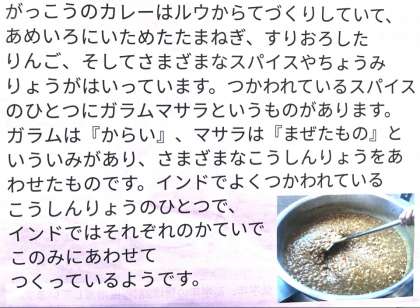 がっこうのカレーはルウからてづくりしていて、
あめいろにいためたたまねぎ、すりおろした
りんご、そしてさまざまなスパイスやちょうみ
りょうがはいっています。つかわれているスパイス
のひとつにガラムマサラというものがあります。
ガラムは『からい』、マサラは『まぜたもの』と
いういみがあり、さまざまなこうしんりょうをあ
わせたものです。インドでよくつかわれている
こうしんりょうのひとつで、
インドではそれぞれのかていで
このみにあわせて
つくっているようです。